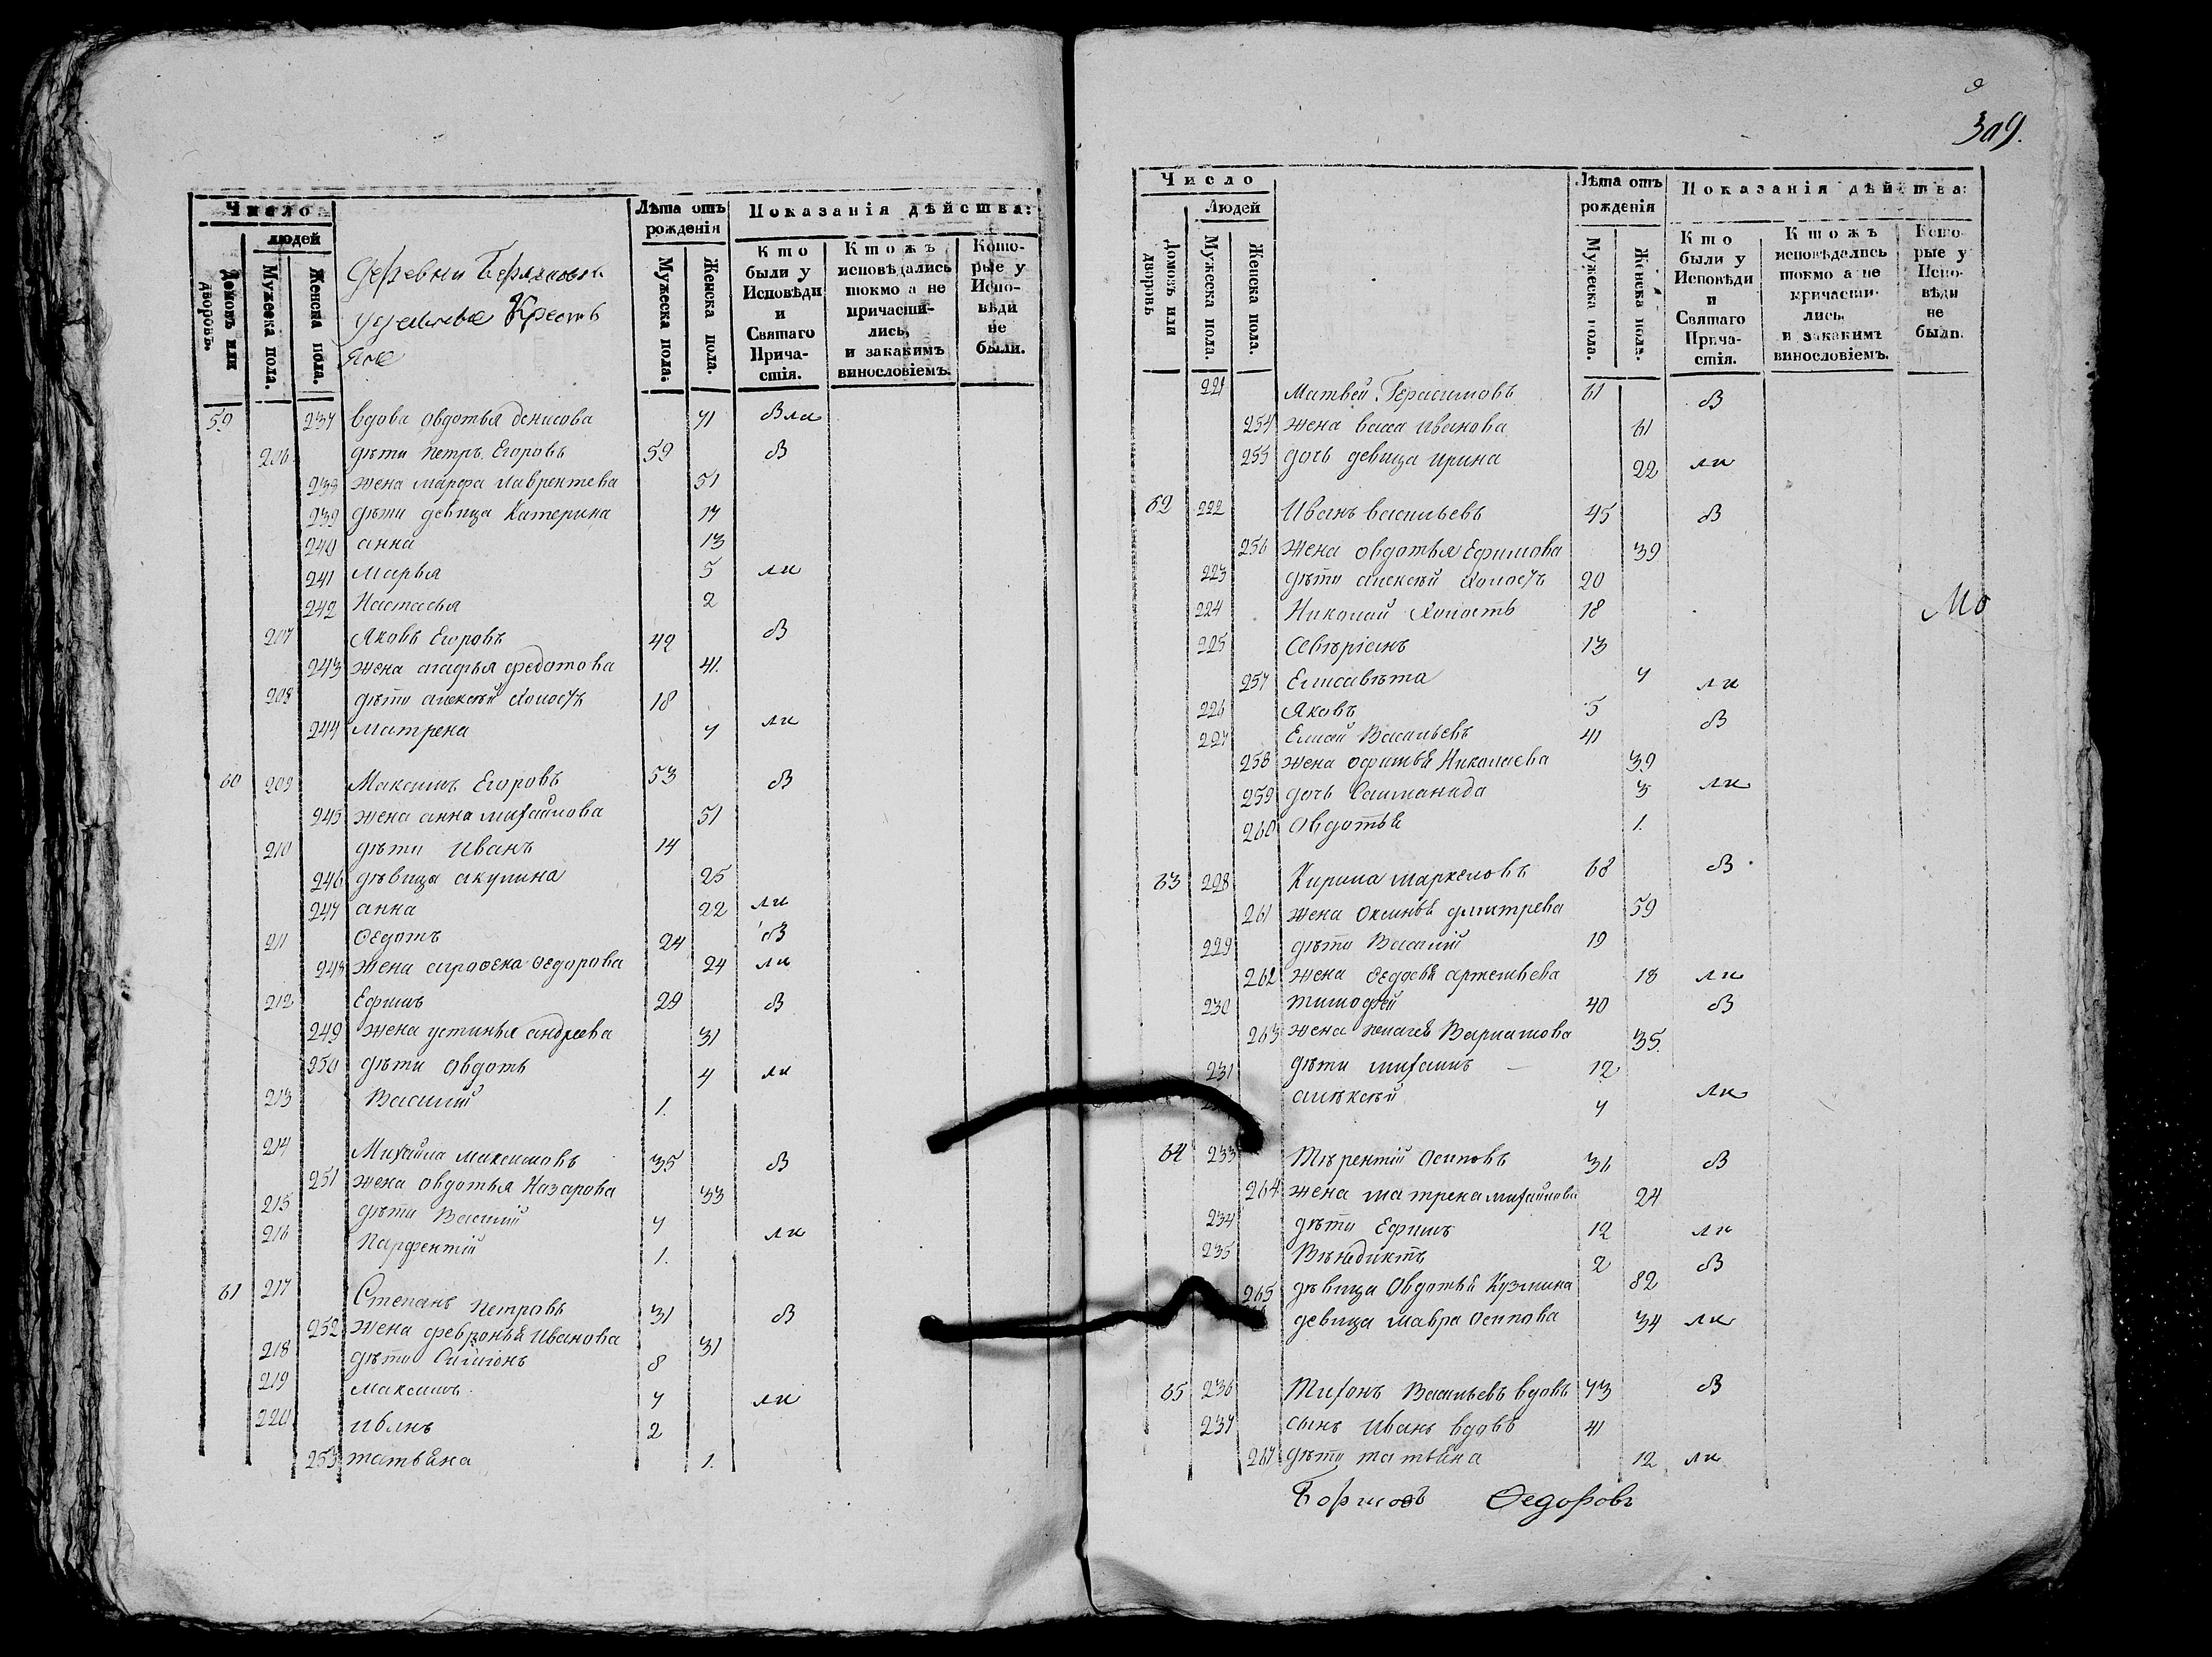 Число
людей
Домовъ или дворовъ.
Мужеска пола.
Женска пола.
Деревни
удельные Крестьяне
Лѣта отъ рожденія
Мужеска пола.
Женска пола.
Показанія дѣйства:
Кто были у Исповѣди и Святаго Причастія.
Ктожъ исповѣдались токмо а не причастились, и закакимъ винословіемъ.
Которые у Исповѣди не были.
59 237 вдова овдотья денисова 71 Были
206 дѣти петръ Егоровъ 59 В
238 жена марфа лаврентева 51
239 дѣти девица Катерина 17
240 анна 13
241 Марья 5 ли
242 Настасья 2
207 Яковъ Егоровъ 42 В
243 жена агафья федотова 41
208 дѣти алексѣй холостъ 18
244 матрена 7 ли
60 209 Максимъ Егоровъ 53 В
245 жена анна михайлова 51
210 дѣти Иванъ 14
246 дѣвицы акулина 25
247 анна 22 ли
211 Ѳедотъ 24 В
248 жена аграфена Ѳедорова 24 ли
212 Ефимъ 29 В
249 жена устинья андреева 31
250 дѣти овдоть 4 ли
213 Василій 1.
214 Михайла максимовъ 35 В
251 жена овдотья Назарова 33
215 дѣти Василій 7
216 Парфентій 1. ли
61 217 Степанъ петровъ 31 В
252 жена февронья Иванова 31
218 дѣти 8
219 максимъ 7 ли
220 иванъ 2
253 татьяна 1.
309.
Число
Людей
Домовъ или дворовъ
Мужеска пола.
Женска пола.
Лѣта отъ рожденія
Мужеска пола.
Женска пола.
Показанія дѣйства:
Кто были у Исповѣди и Святаго Причастія.
Ктожъ исповѣдались токмо а не причастились, и закакимъ винословіемъ.
Которые у Исповѣди не были.
221 Матвей Герасимовъ 61 В
254 жена васса иванова 61
255 дочь девица ирина 22 ли
62 222 Иванъ васильевъ 45 В
256 жена овдотья Ефимова 39
223 дѣти алексѣй холостъ 20
224 Николай холостъ 18
Мо
225 Севѣріанъ 13
257 Елисавѣта 7 ли
226 Яковъ 5
227 Васильевъ 41 В
258 жена Николаева 39
259 дочь 3 ли
260 овдотья 1.
63 228 Кирила маркеловъ 68 В
261 жена Оксинья дмитрева 59
229 дѣти Василій 19
262 жена артемьева 18 ли
230 тимофей 40 В
263 жена 35.
231 дѣти михаилъ 12
алѣксѣй 7 ли
64 233 Тѣрентій Осиповъ 36 В
264 жена матрена михайлова 24
234 дѣти Ефимъ 12 ли
235 Вѣнедиктъ 2 В
265 дѣвица Овдотья Кузмина 82
девица мавра осипова 34 ли
65 236 Тихонъ Васильевъ вдовъ 73 В
237 сынъ Иванъ вдовъ 41
267 дѣти татьяна 12 ли
Ѳедоровъ